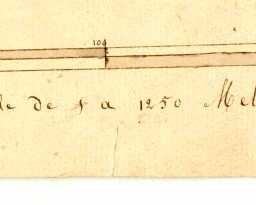 100
de de 1 a 1250 Met